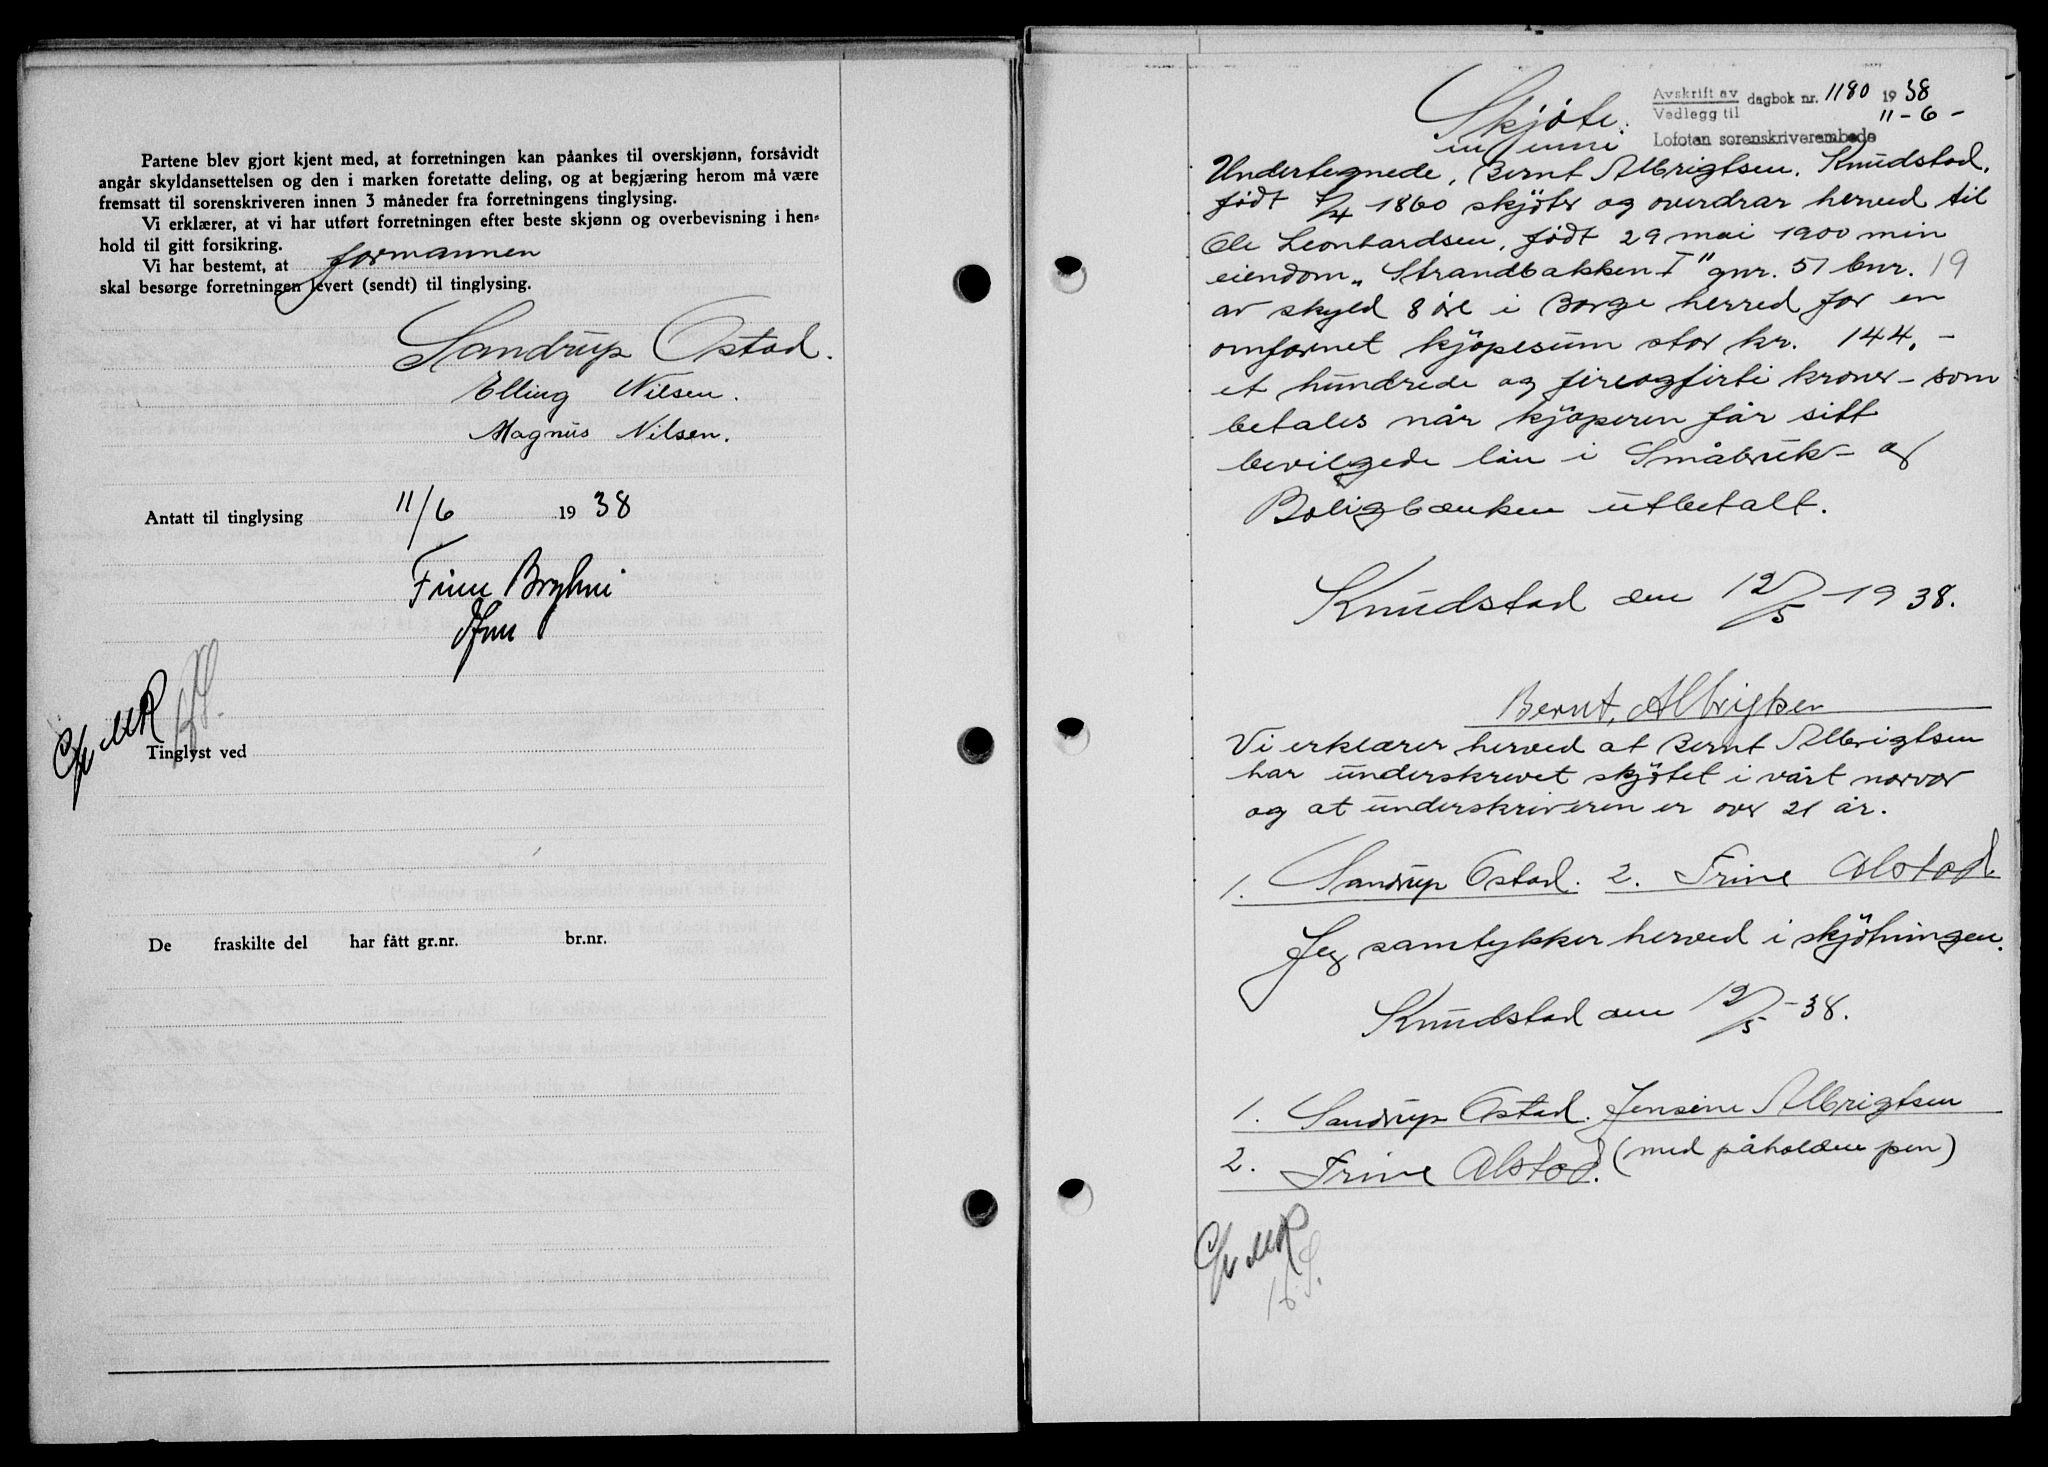 Partene blev gjort kjent med, at forretningen kan påankes til overskjønn, forsåvidt
angår skyldansettelsen og den i marken foretatte deling, og at begjæring herom må være
fremsatt til sorenskriveren innen 3 måneder fra forretningens tinglysing.
Vi erklærer, at vi har utført forretningen efter beste skjønn og overbevisning i hen=
hold til gitt forsikring.
Vi har bestemt, at formannen
skal besørge forretningen levert (sendt) til tinglysing.
Sandrup Ostad.
Elling Nilsen.
Magnus Nilsen.
Antatt til tinglysing 11/6 1938
Finn Bryhni
Tinglyst ved
De fraskilte del har fått gr.nr. br.nr.
Avskrift av
Vedlegg til dagbok nr. 1180 1938
11-6-
Lofoten sorenskriverembede
Skjöte.
Undertegnede, Bernt Albrigtsen, Knudstad,
født /4 1860 skjöter og overdrar herved til
Ole Leonhardsen, født 29 mai 1900 min
eiendom „Strandbakken I" gnr. 51 bnr. 19
av skyld 8 öre i Borge herred for en
omfornet kjöpesum stor kr. 144.-
et hundrede og fireogfirti kroner - som
betales når kjöperen får sitt
bevilgede lån i Småbruk- og
Boligbanken utbetalt.
Knudstad den 12/5 - 1938.
Bernt, Albrigtsen
Vi erklærer herved at Bernt Albrigtsen
har underskrevet skjötet i vårt nærvær
og at underskriveren er over 21 år.
1. Sandrup Ostad. 2. Trine Alstad.
Jeg samtykker herved i skjötningen.
Knudstad den 12/5 - 38.
1. Sandrup Ostad. Jensine Albrigtsen
2. Trine Alstad. (med påholden pen)